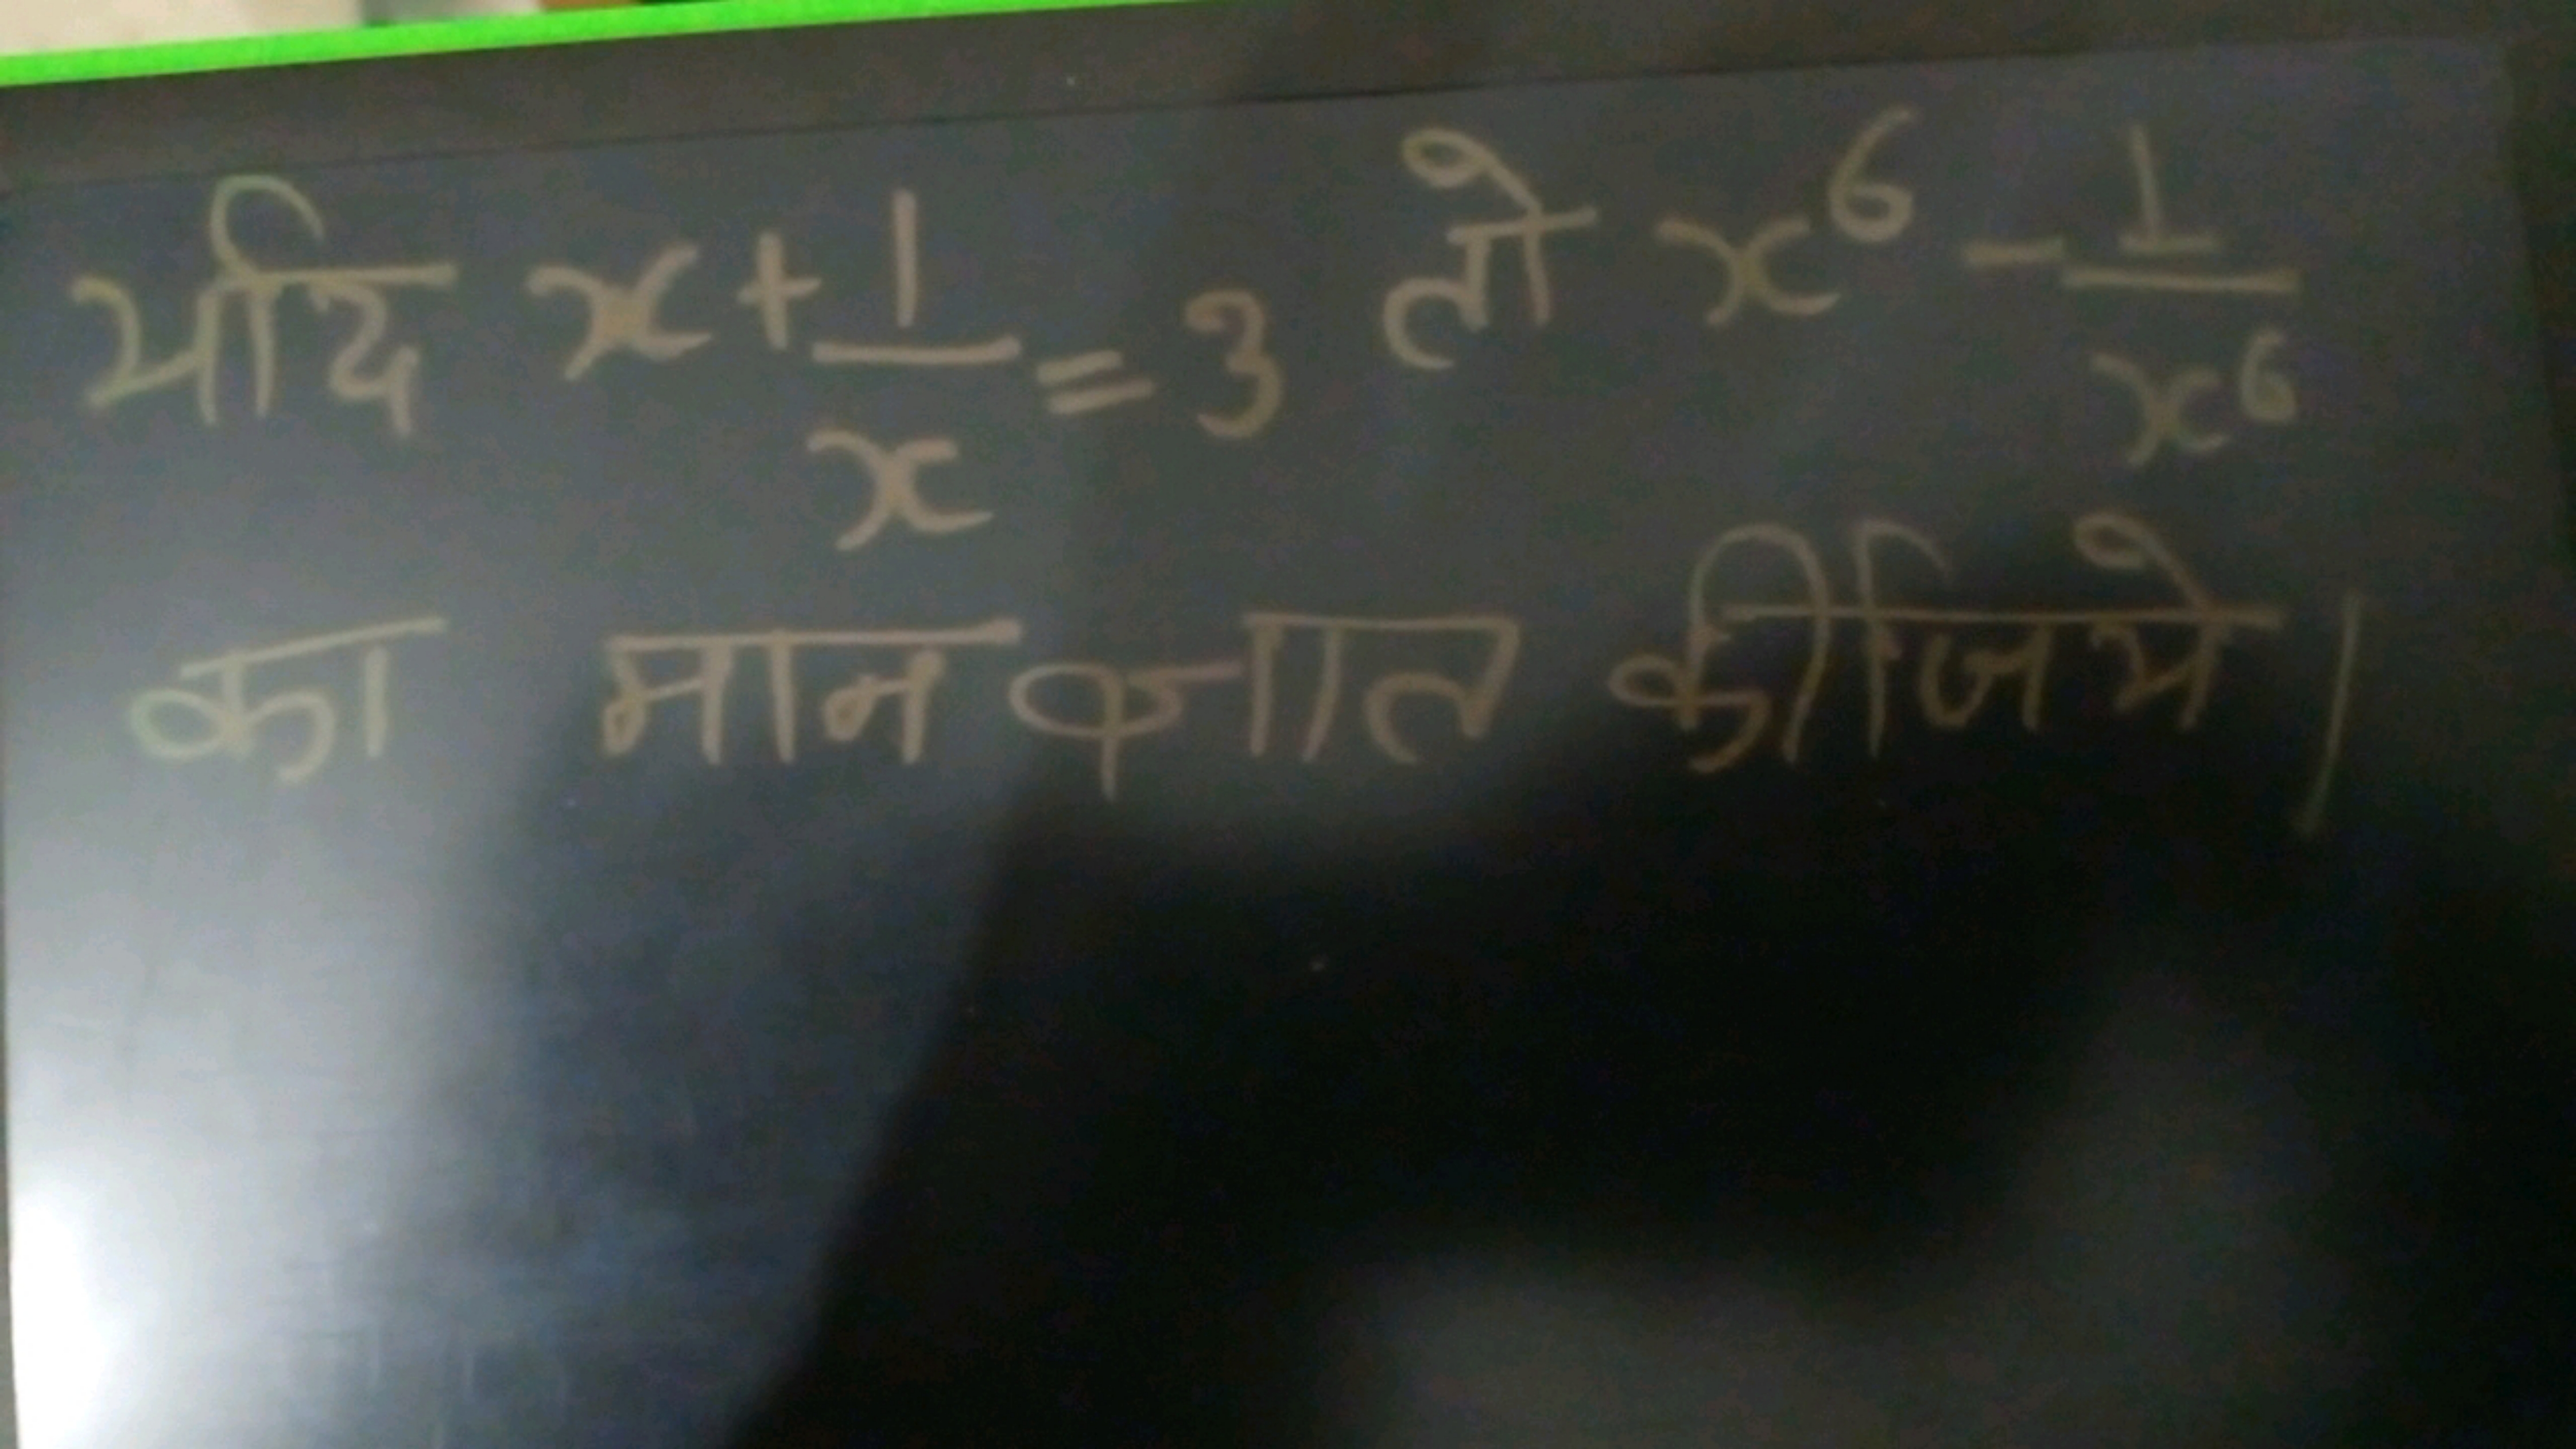 यदि x + 1/x = 3 तो x⁶ - 1/x⁶
का मान ज्ञात कीजिये।